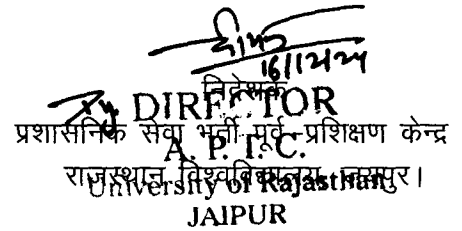 16/12/24
निदेशक
Dy DIRECTOR
प्रशासनिक सेवा भर्ती पूर्व-प्रशिक्षण केन्द्र
A. P. T. C.
राजस्थान विश्वविद्यालय, जयपुर।
University of Rajasthan
JAIPUR